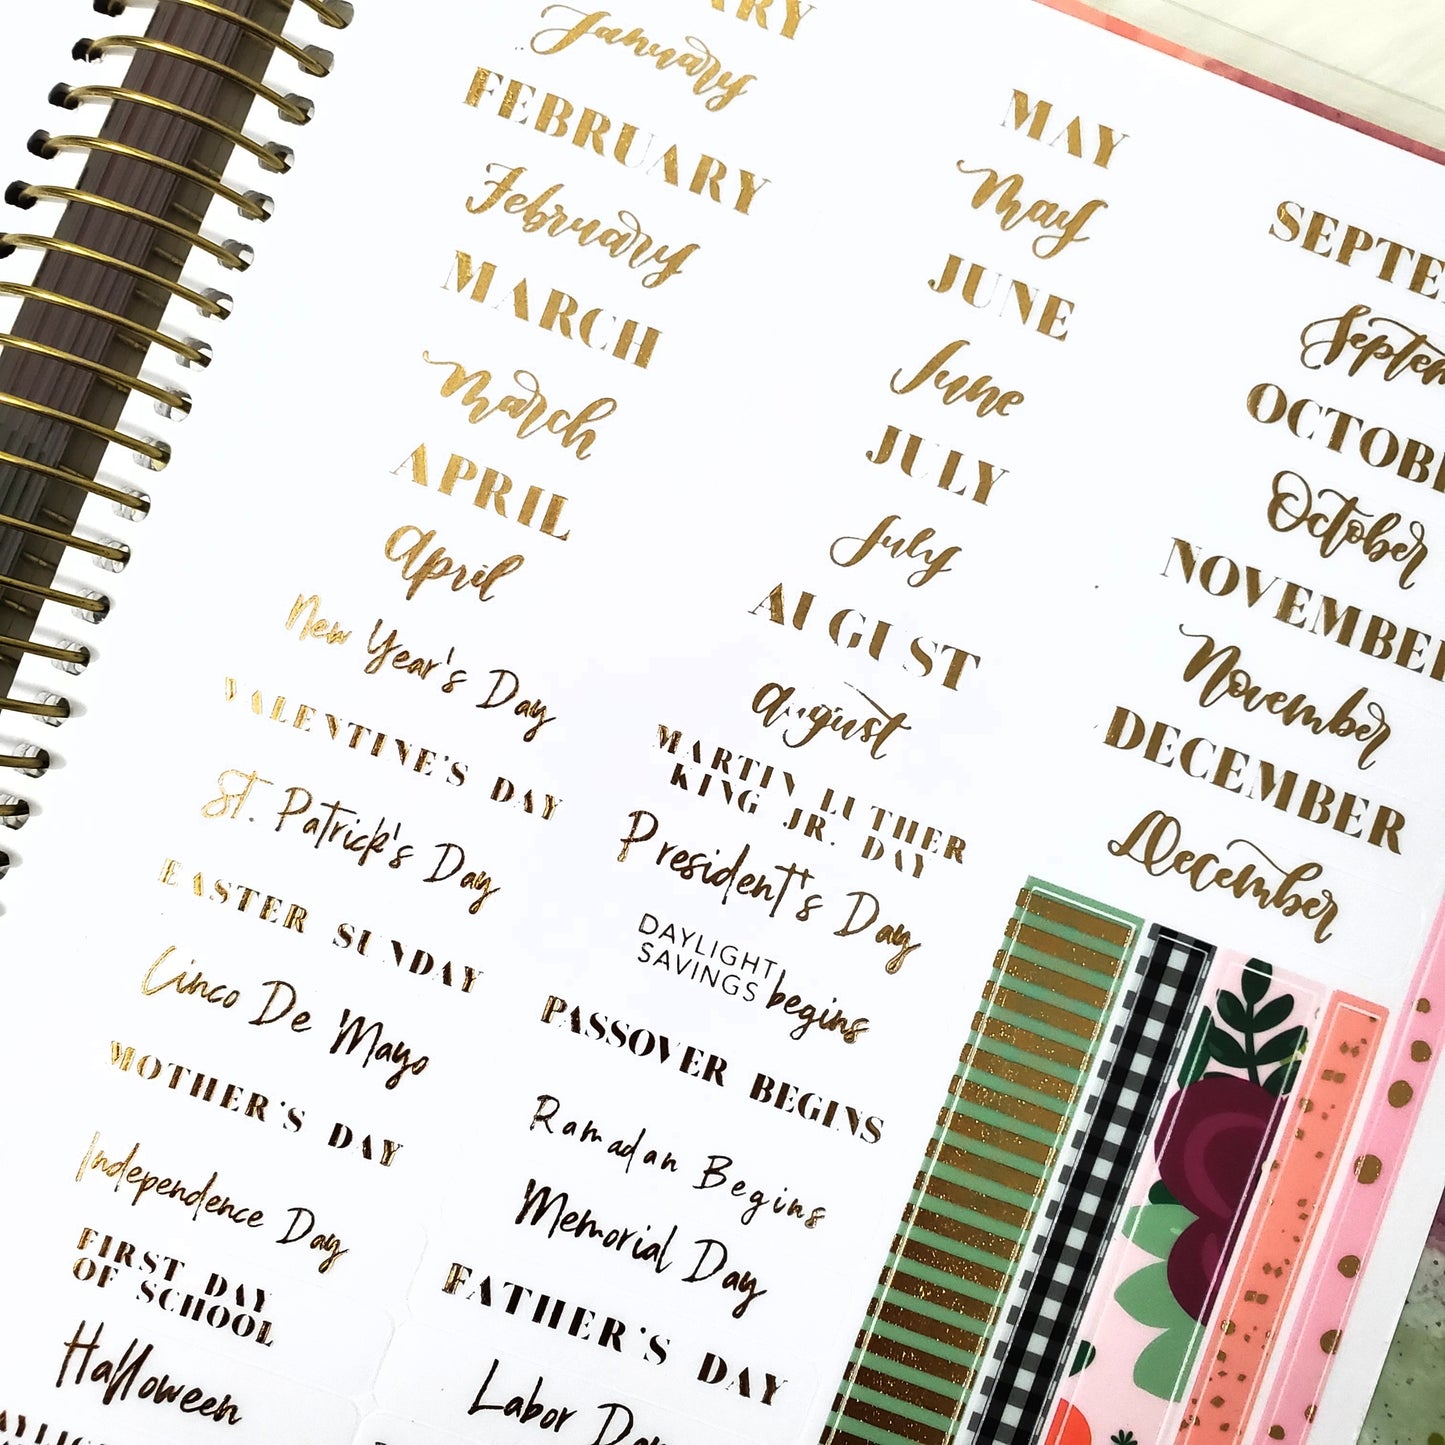 January
FEBRUARY
February
MARCH
March
APRIL
April
New Year's Day
VALENTINE'S DAY
St. Patrick's Day
EASTER SUNDAY
Cinco De Mayo
MOTHER'S DAY
Independence Day
FIRST DAY
OF SCHOOL
Halloween
MAY
May
JUNE
June
JULY
July
AUGUST
August
MARTIN LUTHER
KING JR. DAY
President's Day
DAYLIGHT
SAVINGS begins
PASSOVER BEGINS
Ramadan Begins
Memorial Day
FATHER'S DAY
Labor Day
SEPTE
Septem
OCTOBE
October
NOVEMBER
November
DECEMBER
December